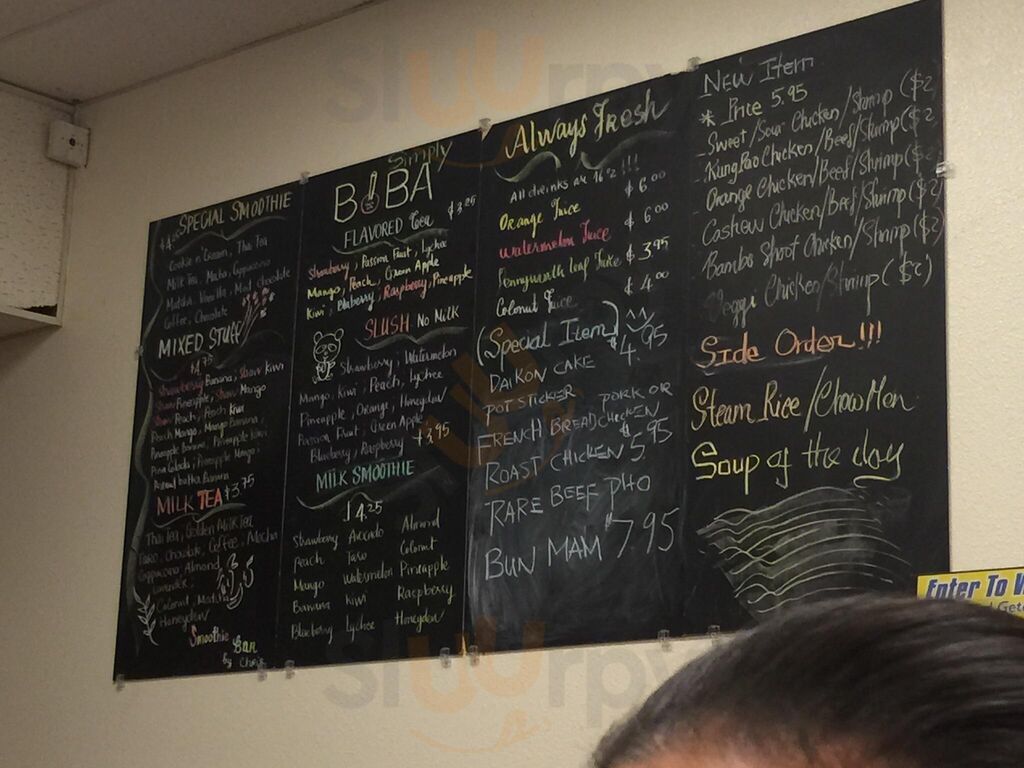 SPECIAL SMOOTHIE
Cookie n' Cream, Thai Tea
Milk Tea, Mocha, Cappuccino
Matcha, Vanilla, Mud chocolate
Coffee, Chocolate
MIXED STUFF
$4.75
Strawberry Banana, Straw Kiwi
Straw Pineapple, Straw Mango
Straw Peach, Peach Kiwi
Peach Mango, Mango Banana
Pineapple Banana, Pineapple Kiwi
Pina Colada, Pineapple Mango
Banana
MILK TEA $3.75
Thai Tea, Golden Milk Tea
Taro, Chocolate, Coffee, Mocha
Cappuccino, Almond
Lavender
Coconut, Matcha
Honeydew
Smoothie Bar
by
Simply
BOBA
FLAVORED Tea $3.25
Strawberry, Passion Fruit, Lychee
Mango, Peach, Green Apple
Kiwi, Blueberry, Raspberry, Pineapple
SLUSH No Milk
Strawberry, Watermelon
Mango, Kiwi, Peach, Lychee
Pineapple, Orange, Honeydew
Passion Fruit, Green Apple
Blueberry, Raspberry $3.95
MILK SMOOTHIE
$4.25
Strawberry Avocado Almond
Peach Taro Coconut
Mango Watermelon Pineapple
Banana Kiwi Raspberry
Blueberry Lychee Honeydew
Always Fresh
All drinks are 16oz !!!
Orange Juice $6.00
Watermelon Juice $6.00
Pennyworth leaf Juice $3.95
Coconut Juice $4.00
(Special Item) ^^
DAIKON CAKE $4.95
POTSTICKER PORK OR CHICKEN
FRENCH BREAD
ROAST CHICKEN $5.95
RARE BEEF PHO
BUN MAM 7.95
New Item
* Price 5.95
- Sweet/Sour Chicken/Shrimp ($2
- KungPao Chicken/Beef/Shrimp ($2
- Orange Chicken/Beef/Shrimp ($2
Cashew Chicken/Beef/Shrimp ($2)
Bambo Shoot Chicken/Shrimp ($2)
Veggi Chicken/Shrimp ($2)
Side Order!!!
Steam Rice/ChowMen
Soup of the day
Enter To W
Get
sluurpy
sluurpy